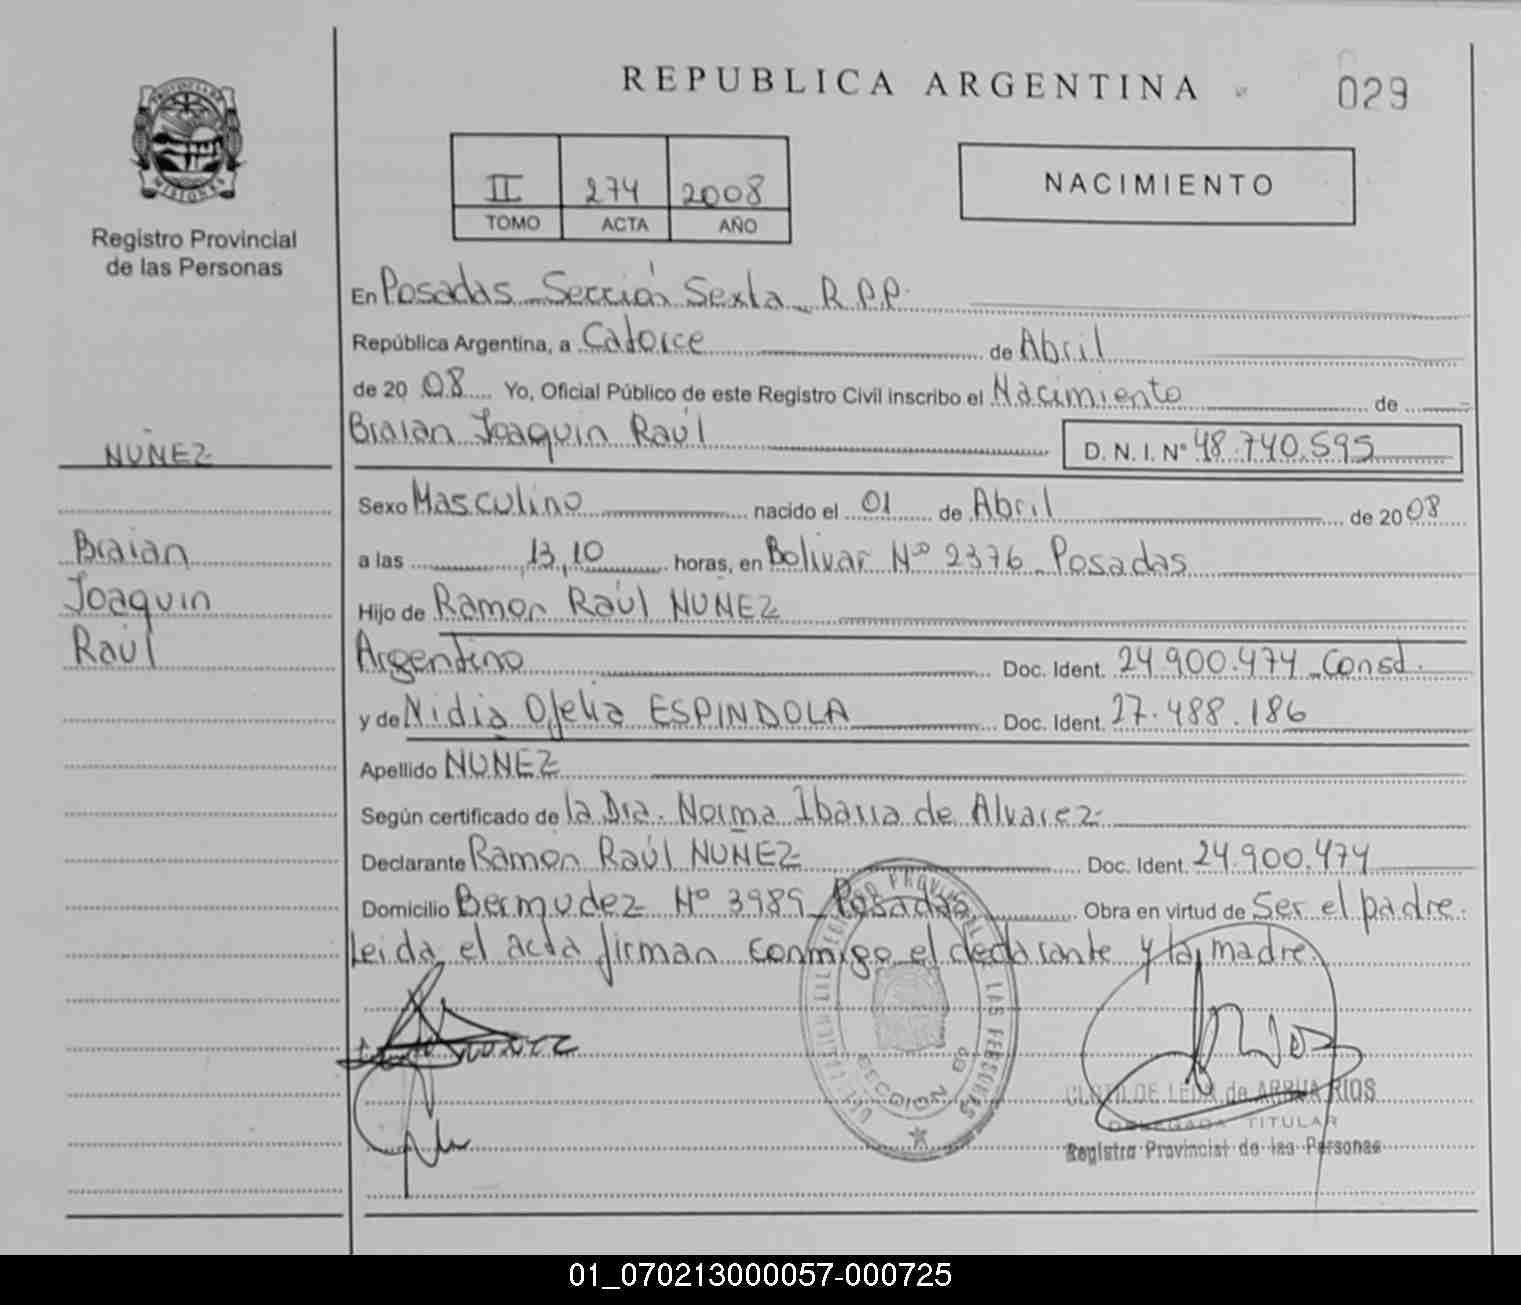 REPUBLICA ARGENTINA
029
PROVINCIA DE
MISIONES
Registro Provincial
de las Personas
II 274 2008
TOMO ACTA AÑO
NACIMIENTO
En Posadas Sección Sexta R.P.P.
República Argentina, a Catorce de Abril
de 20 08 Yo, Oficial Público de este Registro Civil inscribo el Nacimiento de
Braian Joaquin Raúl
D. N. I. Nº 48.740.595
NUÑEZ
Braian
Joaquin
Raúl
Sexo Masculino nacido el 01 de Abril de 20 08
a las 13,10 horas, en Bolivar Nº 2376 Posadas
Hijo de Ramon Raúl NUÑEZ
Argentino Doc. Ident. 24.900.474 Const.
y de Nidia Ofelia ESPINDOLA Doc. Ident. 27.488.186
Apellido NUÑEZ
Según certificado de la Dra. Norma Ibarra de Alvarez
Declarante Ramón Raúl NUÑEZ Doc. Ident. 24.900.474
Domicilio Bermudez Nº 3989 Posadas Obra en virtud de Ser el padre.
Leida el acta firman conmigo el declarante y la madre.
NUÑEZ
REGISTRO PROVINCIAL DE LAS PERSONAS
SECCION 6ª
de ARRUA RIOS
DELEGADA TITULAR
Registro Provincial de las Personas
01_070213000057-000725